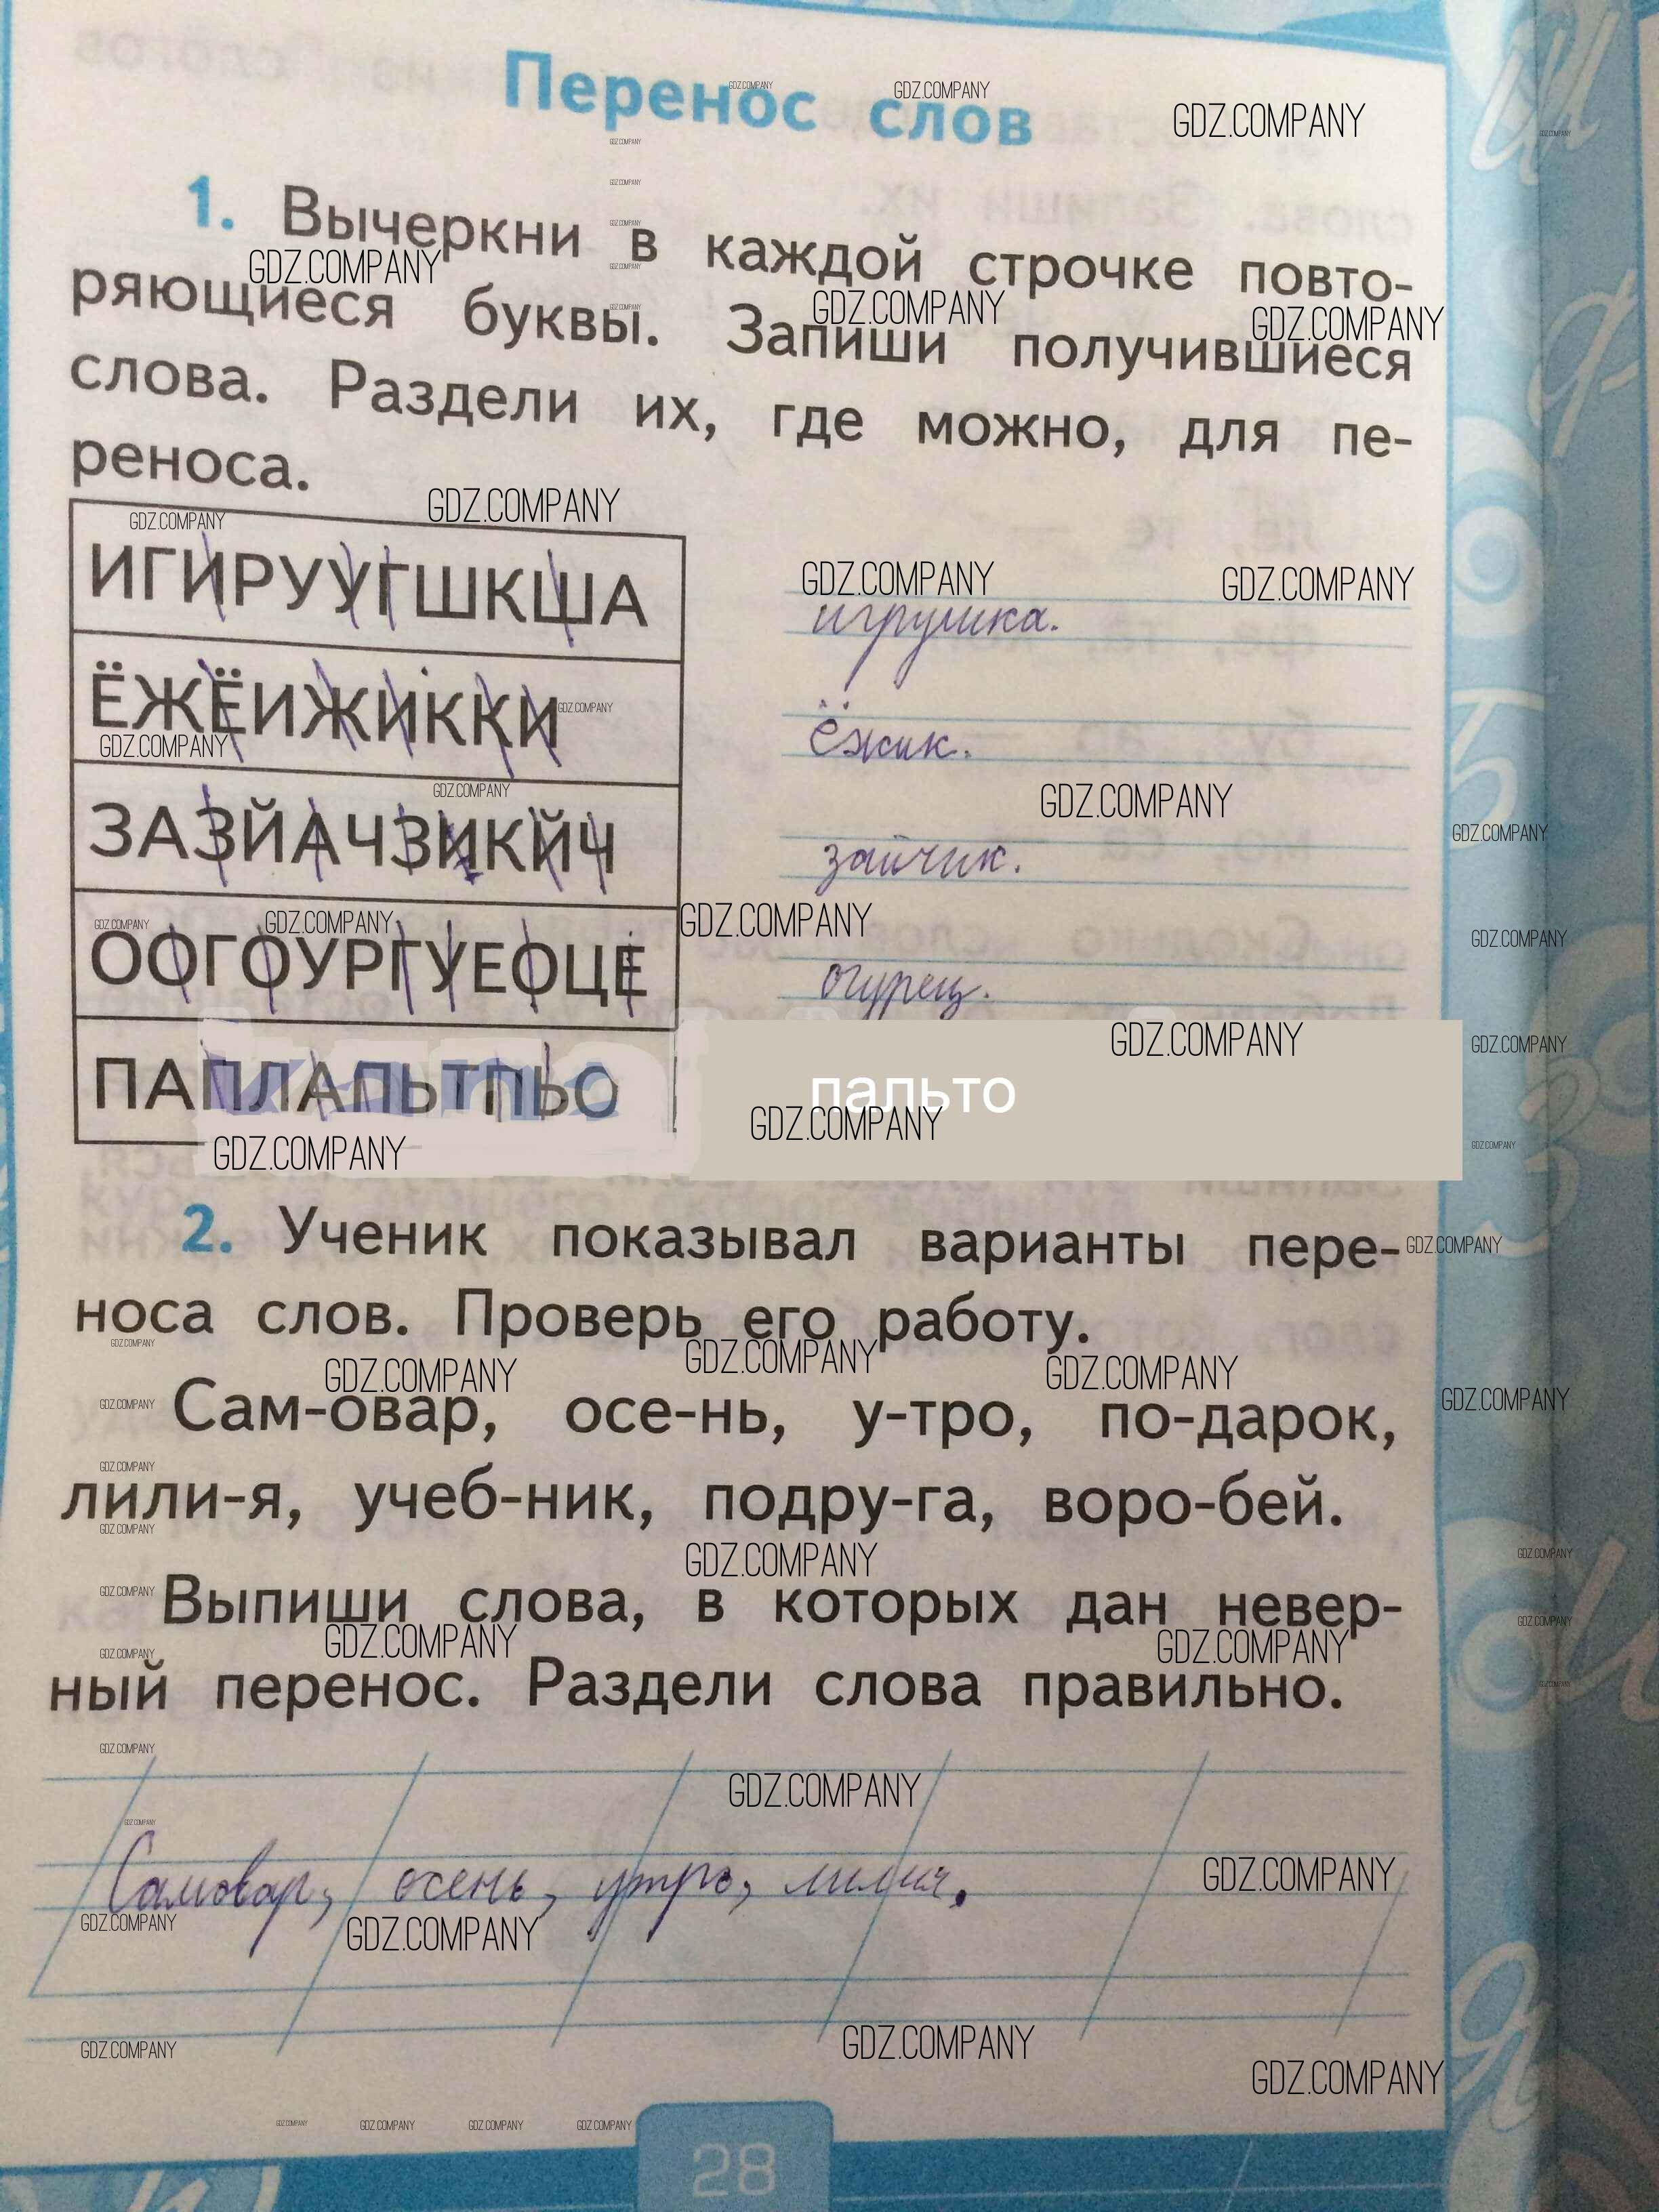 Перенос слов
1. Вычеркни в каждой строчке повто-
ряющиеся буквы. Запиши получившиеся
слова. Раздели их, где можно, для пе-
реноса.
ИГИРУУГШКША
игрушка.
ЁЖЁИЖИККИ
ёжик.
ЗАЗЙАЧЗИКЙЧ
зайчик.
ООГОУРГУЕОЦЕ
огурец.
ПАПЛАПЬТПЬО
пальто
2. Ученик показывал варианты пере-
носа слов. Проверь его работу.
Сам-овар, осе-нь, у-тро, по-дарок,
лили-я, учеб-ник, подру-га, воро-бей.
Выпиши слова, в которых дан невер-
ный перенос. Раздели слова правильно.
Самовар, осень, утро, лилия.
28
GDZ.COMPANY